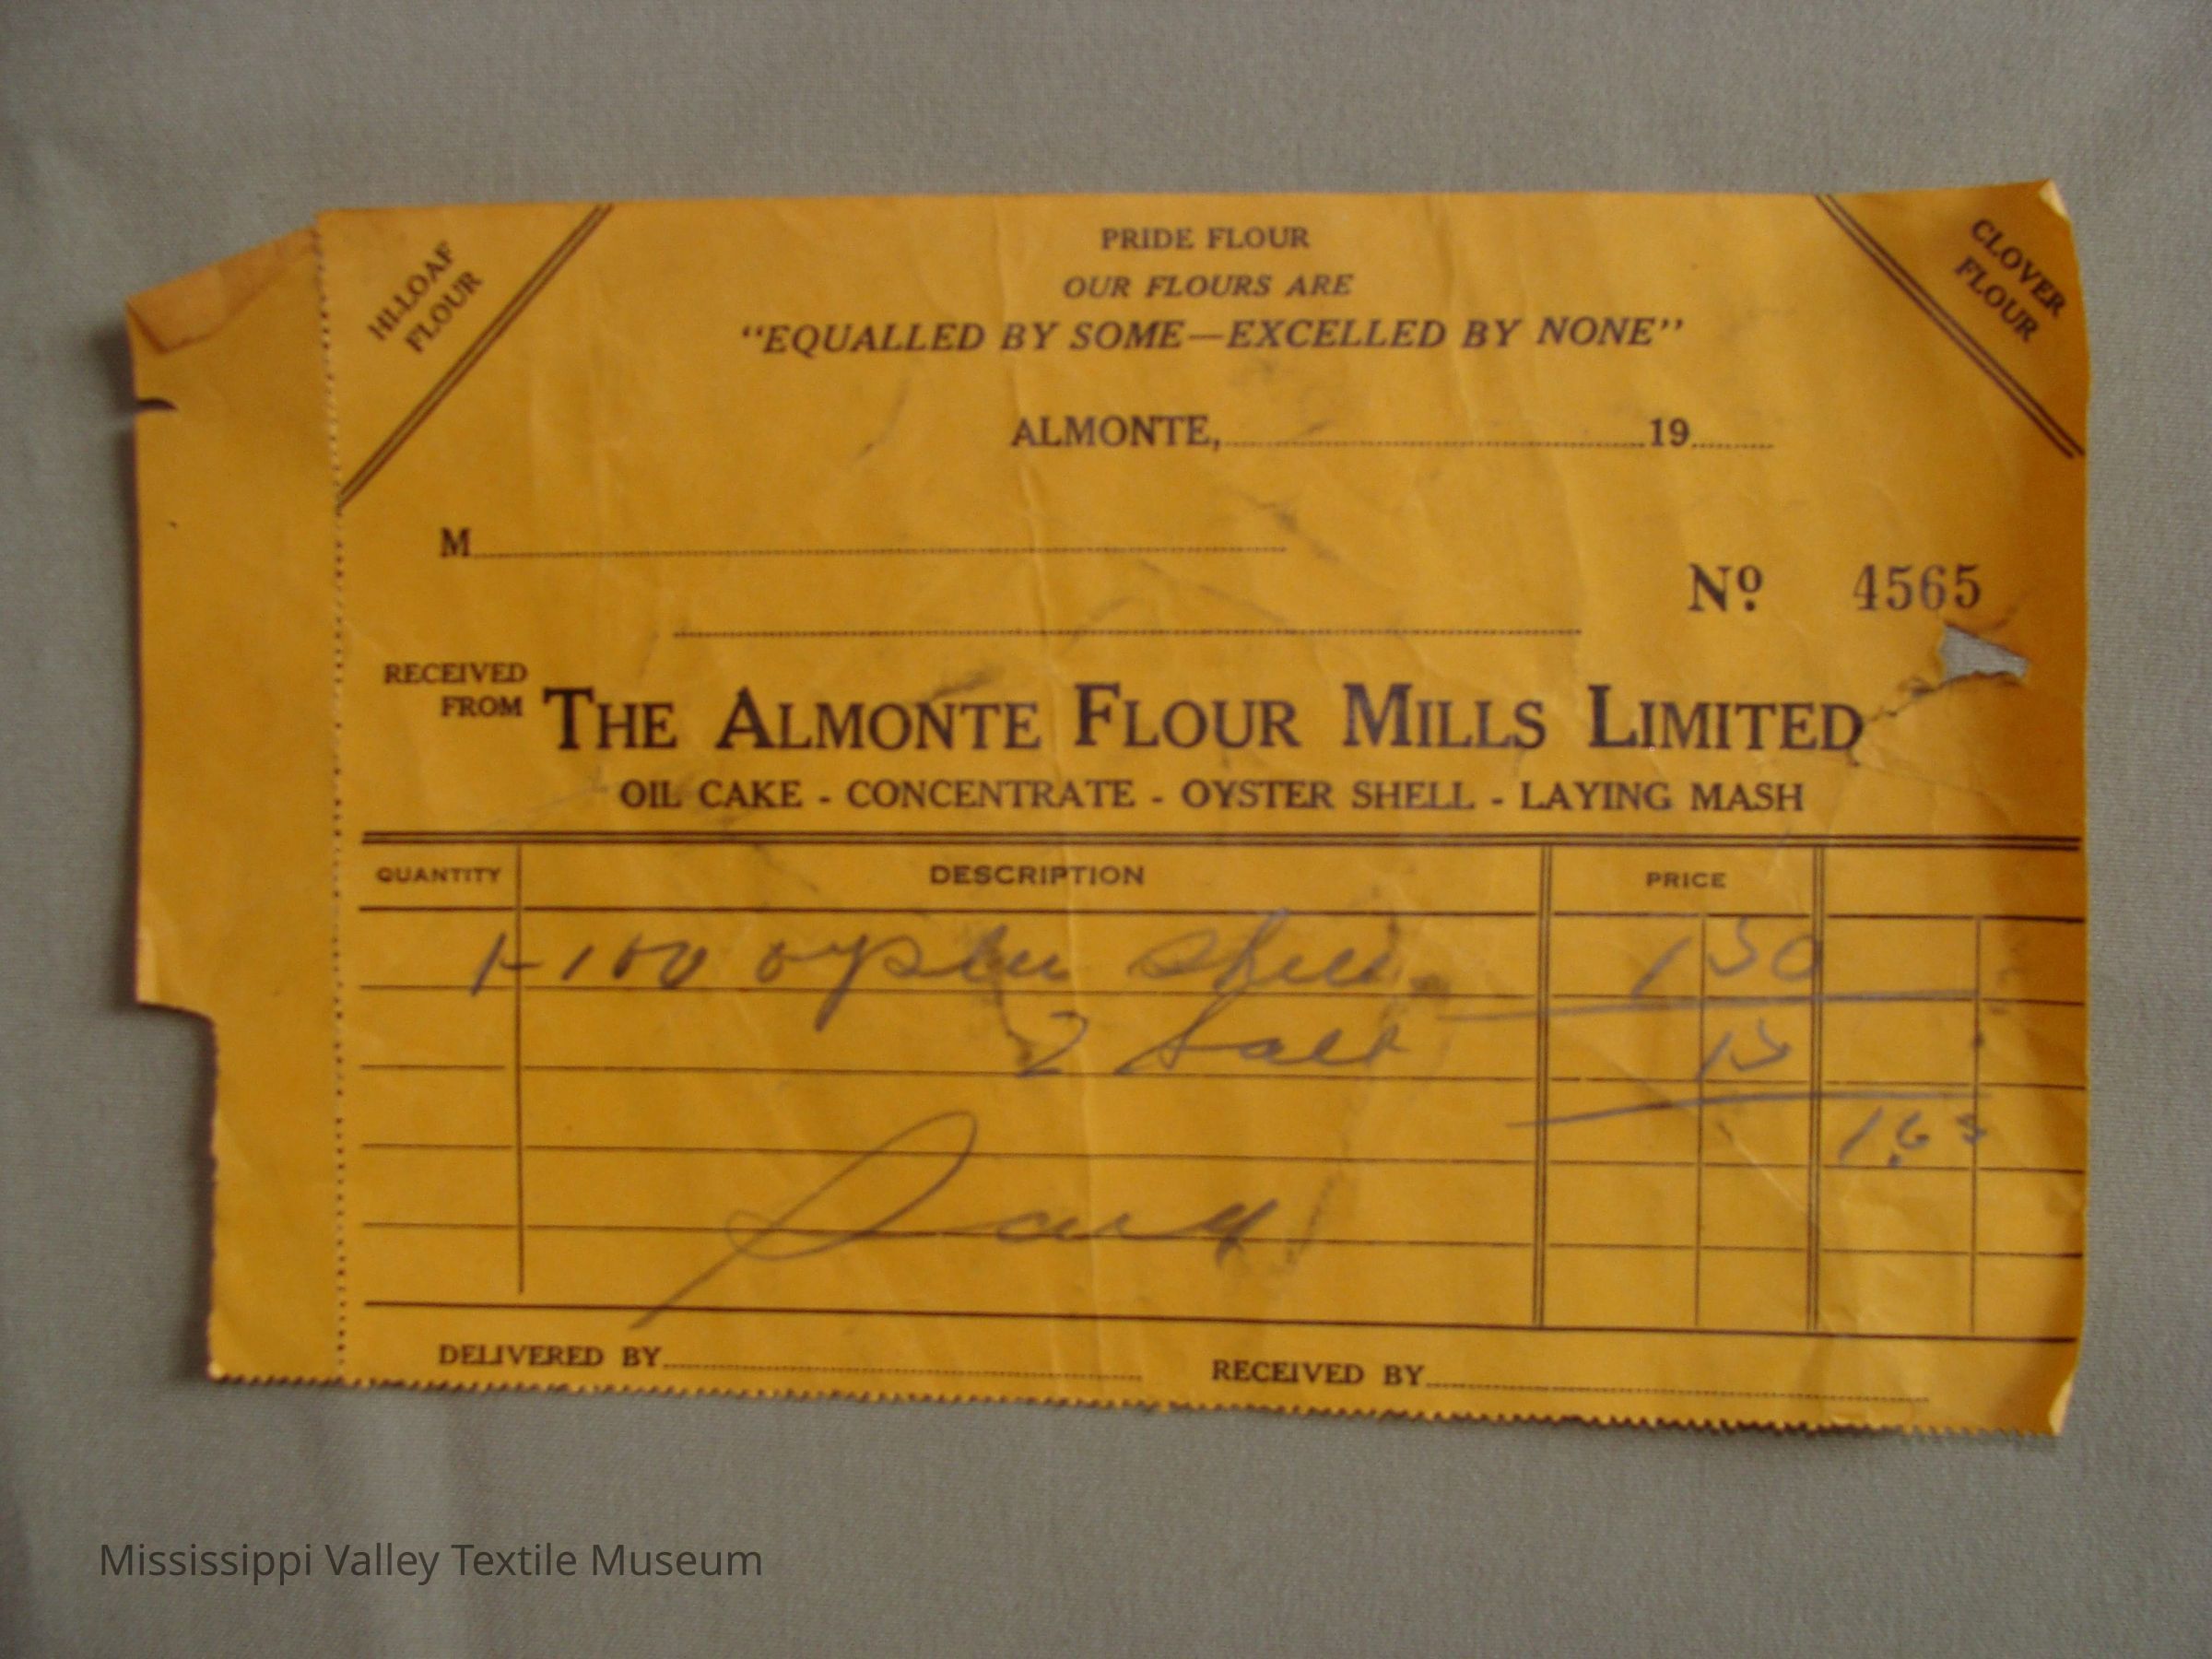 HI-LOAF
FLOUR
PRIDE FLOUR
OUR FLOURS ARE
"EQUALLED BY SOME—EXCELLED BY NONE"
CLOVER
FLOUR
ALMONTE, 19
M
Nº 4565
RECEIVED
FROM THE ALMONTE FLOUR MILLS LIMITED
OIL CAKE - CONCENTRATE - OYSTER SHELL - LAYING MASH
QUANTITY DESCRIPTION PRICE
1-100 oyster shell 1 50
2 salt 15
1.65
DELIVERED BY RECEIVED BY
Mississippi Valley Textile Museum